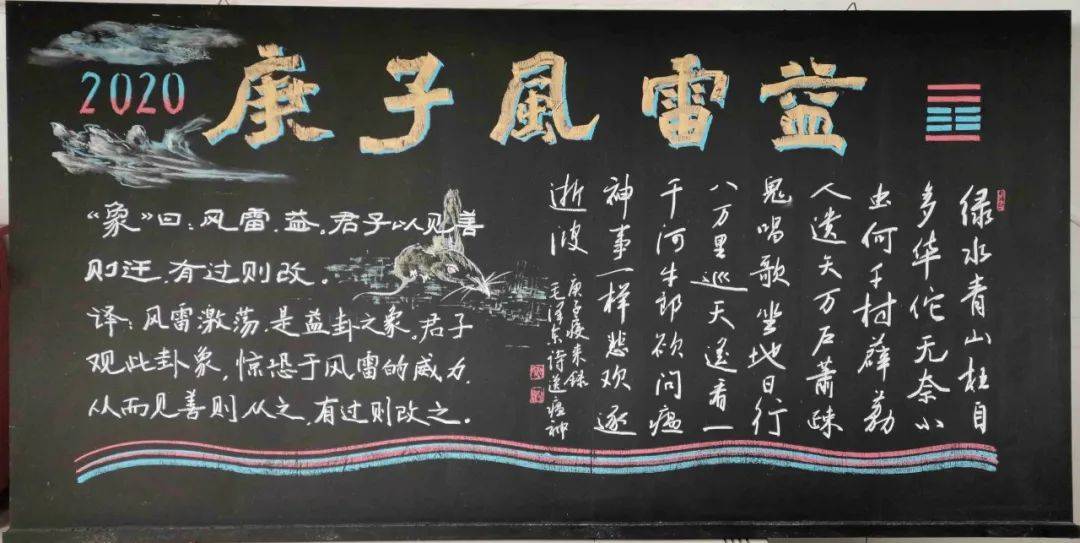 2020
庚子風雷益
“象”曰:风雷,益,君子以见善
则迁,有过则改。
译:风雷激荡,是益卦之象。君子
观此卦象,惊恐于风雷的威力,
从而见善则从之,有过则改之。
绿水青山枉自
多华佗无奈小
虫何千村薜荔
人遗矢万户萧疎
鬼唱歌坐地日行
八万里巡天遥看一
千河牛郎欲问瘟
神事一样悲欢逐
逝波
庚子疫来录
毛泽东诗送瘟神